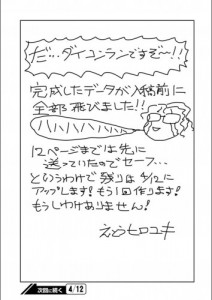 だ…ダイコンランですぞ〜!!
完成したデータが入稿前に
全部飛びました!!
ハハハハハハ
12ページまでは先に
送っていたのでセーフ…
というわけで残りは4/12に
アップします!もう1回作ります!
もうしわけありません!
えらヒロユキ
次回に続く 4/12